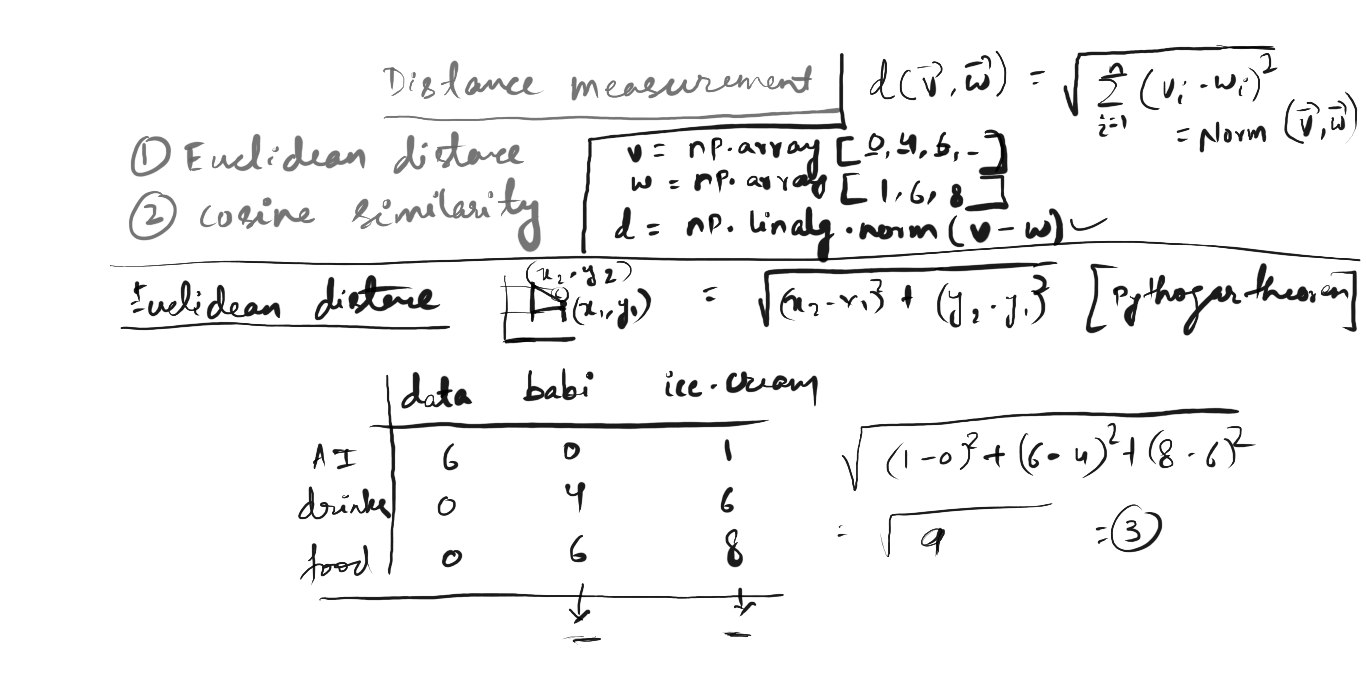 Distance measurement
d(v⃗, w⃗) = √ Σ i=1 n (vi - wi)²
= Norm (v⃗, w⃗)
① Euclidean distance
② cosine similarity
v = np.array [0, 4, 6, -]
w = np.array [1, 6, 8]
d = np.linalg.norm (v - w) ✓
Euclidean distance (x2, y2) (x1, y1) = √(x2 - x1)² + (y2 - y1)² [Pythogar theorem]
data babi ice-cream
AI 6 0 1
drinks 0 4 6
food 0 6 8
√(1-0)² + (6-4)² + (8-6)²
= √9 = ③